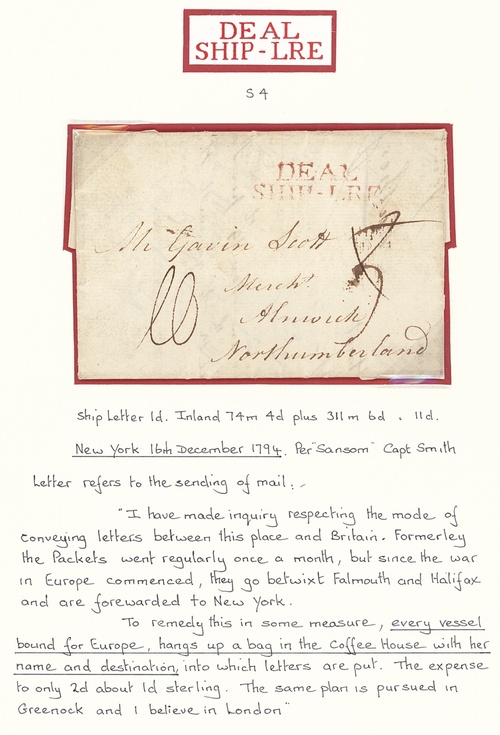 DEAL
SHIP-LRE
S4
DEAL
SHIP-LRE
Mr Gavin Scott
Mercht
Alnwick
Northumberland
Ship Letter 1d. Inland 74m 4d plus 311m 6d . 11d.
New York 16th December 1794. Per "Sansom" Capt Smith
Letter refers to the sending of mail :-
"I have made inquiry respecting the mode of
conveying letters between this place and Britain. Formerley
the Packets went regularly once a month, but since the war
in Europe commenced, they go betwixt Falmouth and Halifax
and are forewarded to New York.
To remedy this in some measure, every vessel
bound for Europe, hangs up a bag in the Coffee House with her
name and destination, into which letters are put. The expense
to only 2d about 1d sterling. The same plan is pursued in
Greenock and I believe in London"